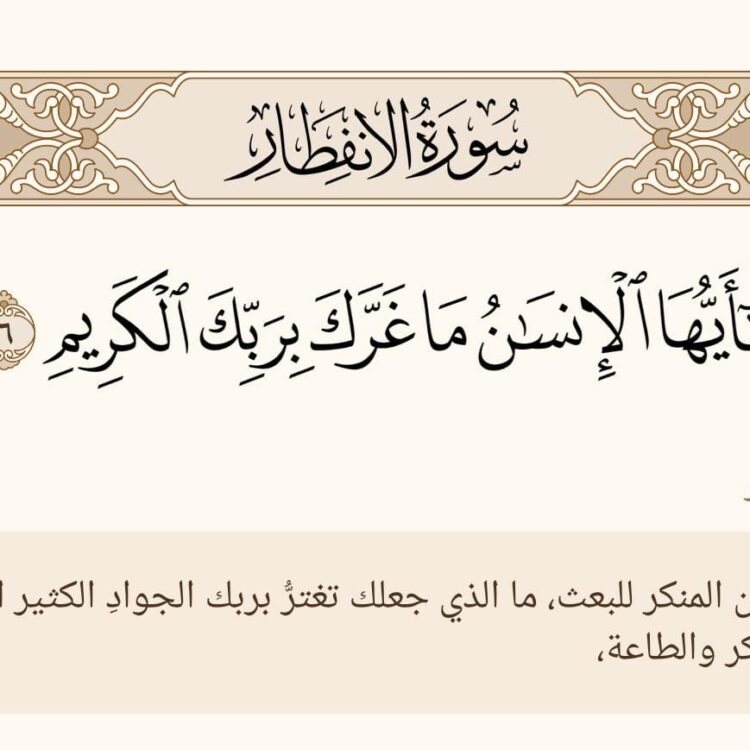 سُورَةُ الانفِطَارِ
أَيُّهَا ٱلْإِنسَـٰنُ مَا غَرَّكَ بِرَبِّكَ ٱلْكَرِيمِ ٦
المنكر للبعث، ما الذي جعلك تغترُّ بربك الجوادِ الكثير
والطاعة،